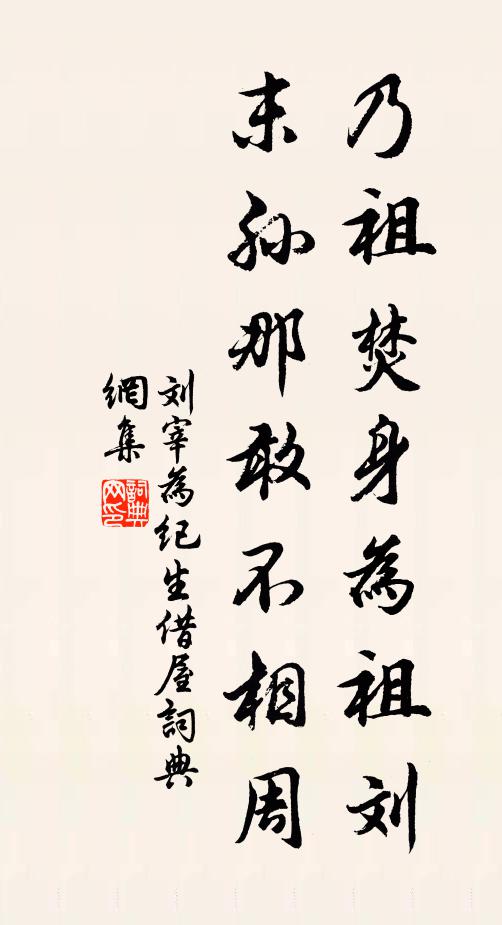 乃祖焚身為祖刘
末孙那敢不相周
刘宰為纪生借屋詞典
網集
詞典網印